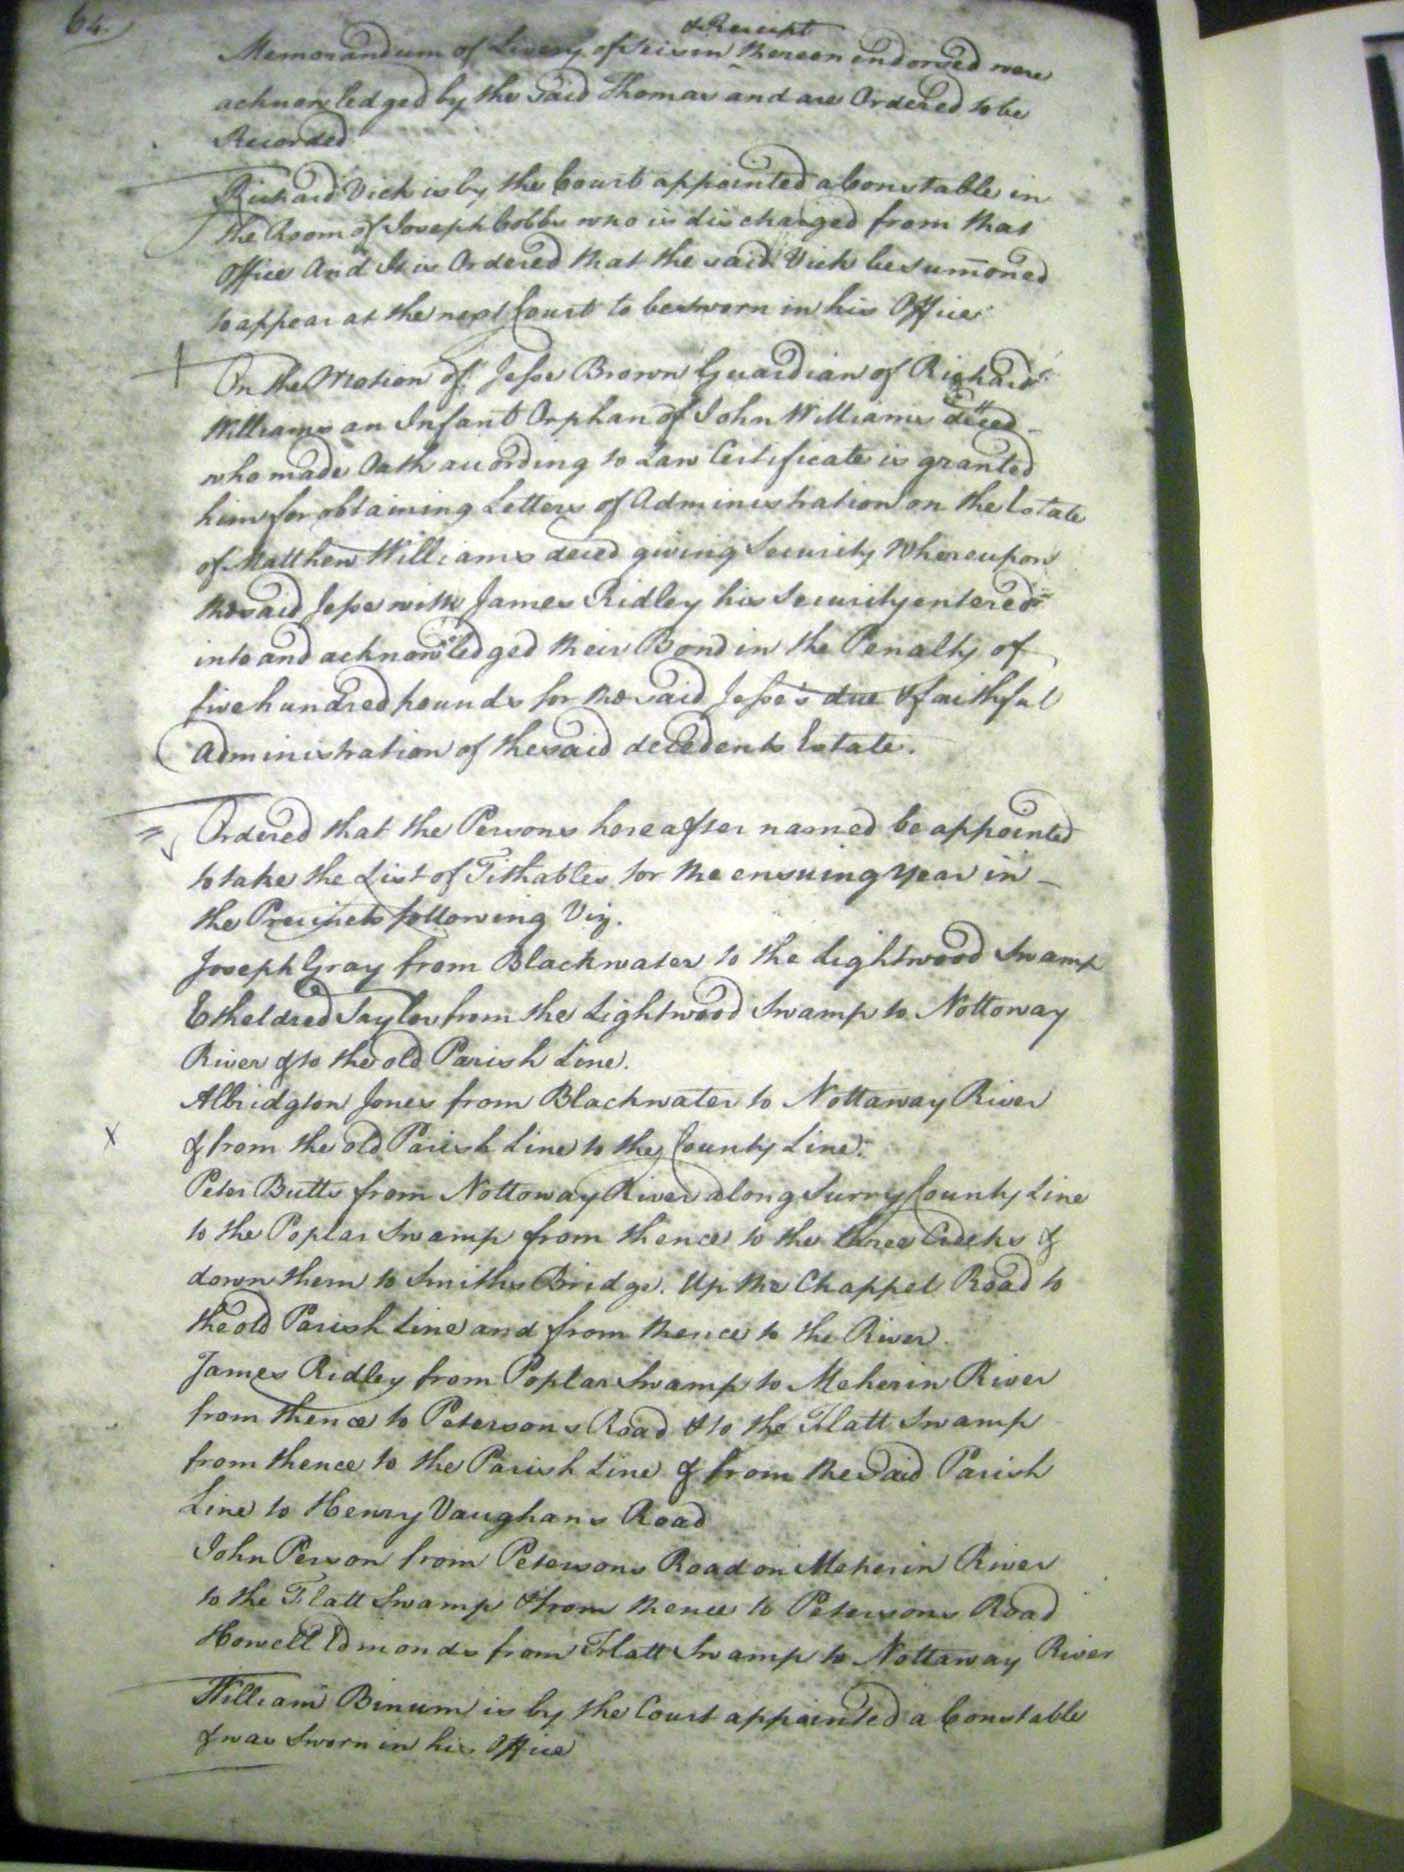 64
& Receipt
Memorandum of Livery of Seisin thereon endorsed were
acknowledged by the said Thomas and are Ordered to be
Recorded
Richard Vick is by the Court appointed a Constable in
the Room of Joseph Cobbs who is discharged from that
Office And It is Ordered that the said Vick be sum̄oned
to appear at the next Court to be sworn in his Office
On the Motion of Jesse Brown Guardian of Richard
Williams an Infant Orphan of John Williams deced
who made Oath according to Law Certificate is granted
him for obtaining Letters of Administration on the Estate
of Matthew Williams deced giving Security Whereupon
the said Jesse with James Ridley his Security entered
into and acknowledged their Bond in the Penalty of
five hundred pounds for the said Jesse's due & faithful
Administration of the said decedents Estate.
Ordered that the Persons hereafter named be appointed
to take the List of Tithables for the ensuing Year in
the Precincts following Viz.
Joseph Gray from Blackwater to the Lightwood Swamp
Etheldred Taylor from the Lightwood Swamp to Nottoway
River & to the old Parish Line.
Albridgton Jones from Blackwater to Nottaway River
& from the old Parish Line to the County Line.
Peter Butts from Nottoway River along Surry County Line
to the Poplar Swamp from thence to the three Creeks &
down them to Smiths Bridge. Up the Chappel Road to
the old Parish Line and from thence to the River
James Ridley from Poplar Swamp to Meherin River
from thence to Petersons Road & to the Flatt Swamp
from thence to the Parish Line & from the said Parish
Line to Henry Vaughans Road
John Person from Petersons Road on Meherin River
to the Flatt Swamp & from thence to Petersons Road
Howell Edmonds from Flatt Swamp to Nottaway River
William Binum is by the Court appointed a Constable
& was Sworn in his Office